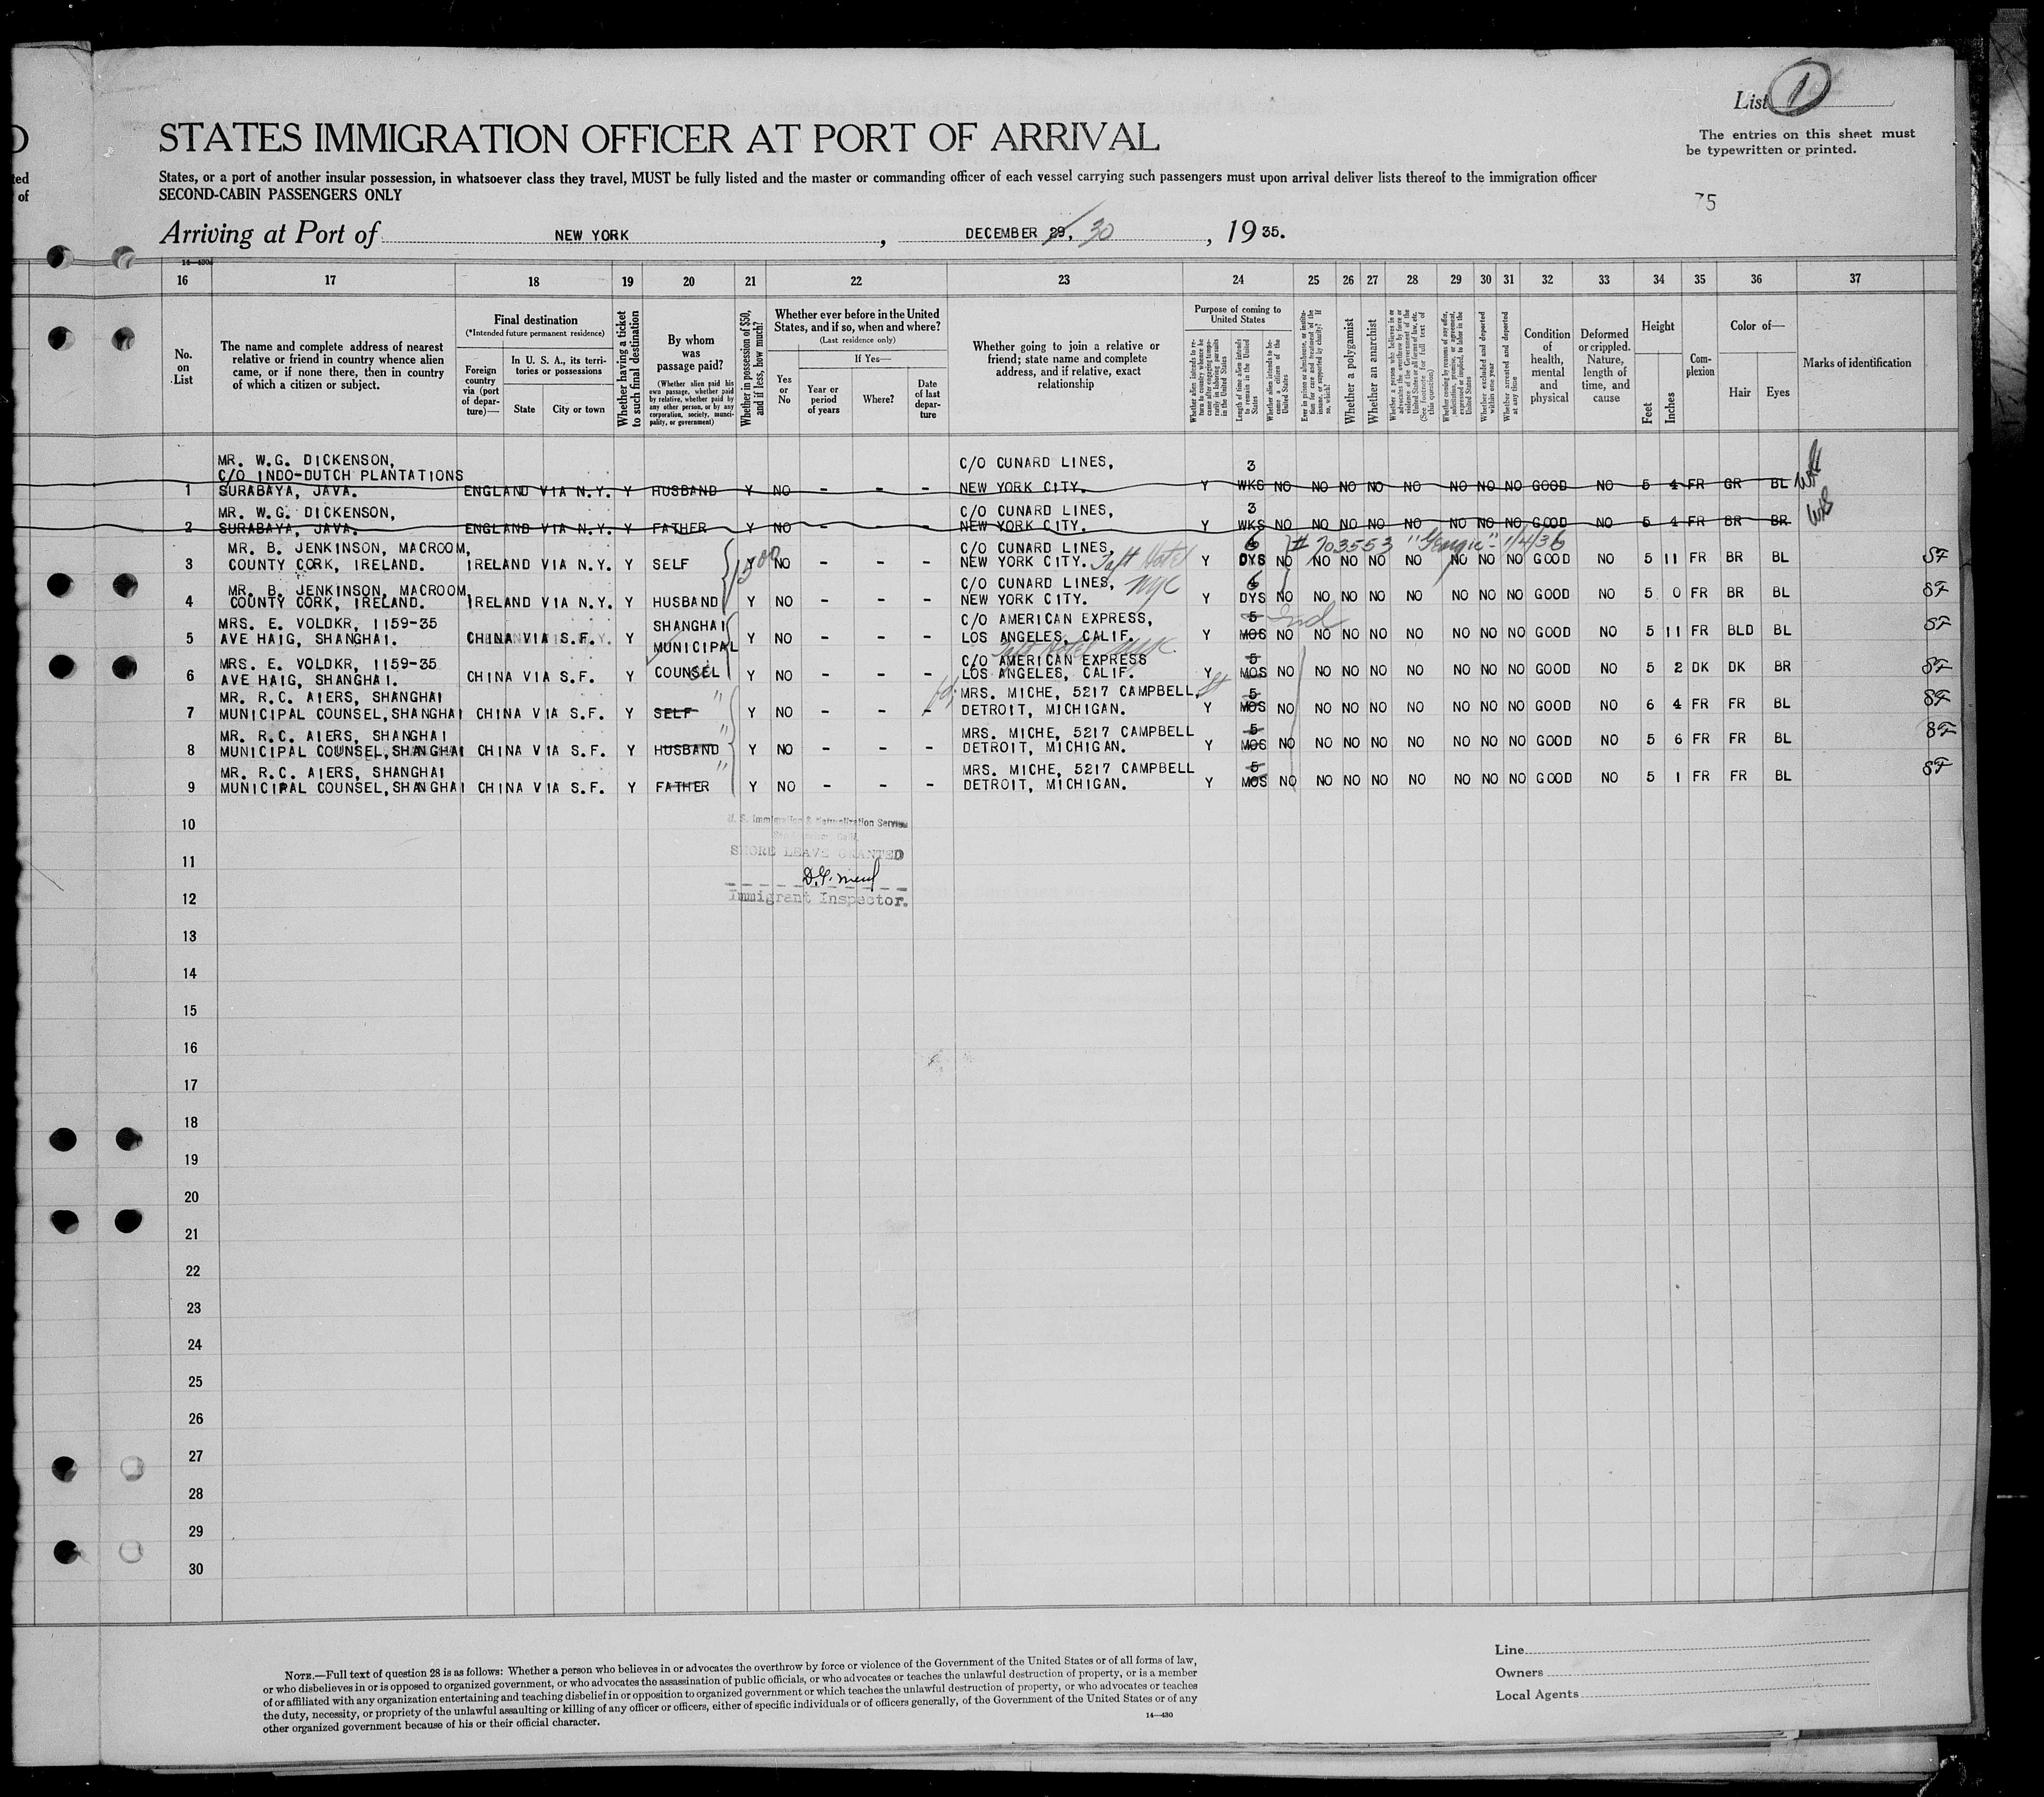 List 1
STATES IMMIGRATION OFFICER AT PORT OF ARRIVAL
The entries on this sheet must
be typewritten or printed.
ted
of
States, or a port of another insular possession, in whatsoever class they travel, MUST be fully listed and the master or commanding officer of each vessel carrying such passengers must upon arrival deliver lists thereof to the immigration officer
SECOND-CABIN PASSENGERS ONLY
75
Arriving at Port of NEW YORK, DECEMBER 29, 30, 1935.
14—430
16 17 18 19 20 21 22 23 24 25 26 27 28 29 30 31 32 33 34 35 36 37
No. on List
The name and complete address of nearest relative or friend in country whence alien came, or if none there, then in country of which a citizen or subject.
Final destination
(*Intended future permanent residence)
Foreign country via (port of departure)—
In U. S. A., its territories or possessions
State
City or town
Whether having a ticket to such final destination
By whom was passage paid?
(Whether alien paid his own passage, whether paid by relative, whether paid by any other person, or by any corporation, society, municipality, or government)
Whether in possession of $50, and if less, how much?
Whether ever before in the United States, and if so, when and where?
(Last residence only)
Yes or No
If Yes—
Year or period of years
Where?
Date of last departure
Whether going to join a relative or friend; state name and complete address, and if relative, exact relationship
Purpose of coming to United States
Whether alien intends to return to country whence he came after engaging temporarily in laboring pursuits in the United States
Length of time alien intends to remain in the United States
Whether alien intends to become a citizen of the United States
Ever in prison or almshouse, or institution for care and treatment of the insane, or supported by charity? If so, which?
Whether a polygamist
Whether an anarchist
Whether a person who believes in or advocates the overthrow by force or violence of the Government of the United States or all forms of law, etc. (See footnote for full text of this question)
Whether coming by reasons of any offer, solicitation, promise, or agreement, expressed or implied, to labor in the United States
Whether excluded and deported within one year
Whether arrested and deported at any time
Condition of health, mental and physical
Deformed or crippled. Nature, length of time, and cause
Height
Feet
Inches
Complexion
Color of—
Hair
Eyes
Marks of identification
MR. W.G. DICKENSON, C/O CUNARD LINES, 3
C/O INDO-DUTCH PLANTATIONS
1 SURABAYA, JAVA. ENGLAND VIA N.Y. Y HUSBAND Y NO - - - NEW YORK CITY. Y WKS NO NO NO NO NO NO NO NO GOOD NO 5 4 FR GR BL
MR. W.G. DICKENSON, C/O CUNARD LINES, 3
2 SURABAYA, JAVA. ENGLAND VIA N.Y. Y FATHER Y NO - - - NEW YORK CITY. Y WKS NO NO NO NO NO NO NO NO GOOD NO 5 4 FR BR BR
MR. B. JENKINSON, MACROOM, C/O CUNARD LINES, 6 # 703553 "Georgic" - 1/4/36
3 COUNTY CORK, IRELAND. IRELAND VIA N.Y. Y SELF Y NO - - - NEW YORK CITY. Taft Hotel Y DYS NO NO NO NO NO NO NO NO GOOD NO 5 11 FR BR BL SF
MR. B. JENKINSON, MACROOM, C/O CUNARD LINES, NYC 6
4 COUNTY CORK, IRELAND. IRELAND VIA N.Y. Y HUSBAND Y NO - - - NEW YORK CITY. Y DYS NO NO NO NO NO NO NO NO GOOD NO 5 0 FR BR BL SF
MRS. E. VOLDKR, 1159-35 SHANGHAI C/O AMERICAN EXPRESS, 5
5 AVE HAIG, SHANGHAI. CHINA VIA S.F. Y MUNICIPAL Y NO - - - LOS ANGELES, CALIF. Y MOS NO NO NO NO NO NO NO NO GOOD NO 5 11 FR BLD BL SF
MRS. E. VOLDKR, 1159-35 C/O AMERICAN EXPRESS 5
6 AVE HAIG, SHANGHAI. CHINA VIA S.F. Y COUNSEL Y NO - - - LOS ANGELES, CALIF. Y MOS NO NO NO NO NO NO NO NO GOOD NO 5 2 DK DK BR SF
MR. R.C. AIERS, SHANGHAI " MRS. MICHE, 5217 CAMPBELL, St 5
7 MUNICIPAL COUNSEL, SHANGHAI CHINA VIA S.F. Y SELF Y NO - - - DETROIT, MICHIGAN. Y MOS NO NO NO NO NO NO NO NO GOOD NO 6 4 FR FR BL SF
MR. R.C. AIERS, SHANGHAI " MRS. MICHE, 5217 CAMPBELL 5
8 MUNICIPAL COUNSEL, SHANGHAI CHINA VIA S.F. Y HUSBAND Y NO - - - DETROIT, MICHIGAN. Y MOS NO NO NO NO NO NO NO NO GOOD NO 5 6 FR FR BL SF
MR. R.C. AIERS, SHANGHAI " MRS. MICHE, 5217 CAMPBELL 5
9 MUNICIPAL COUNSEL, SHANGHAI CHINA VIA S.F. Y FATHER Y NO - - - DETROIT, MICHIGAN. Y MOS NO NO NO NO NO NO NO NO GOOD NO 5 1 FR FR BL SF
10
U. S. Immigration & Naturalization Service
11
SHORE LEAVE GRANTED
12
Immigrant Inspector.
13
14
15
16
17
18
19
20
21
22
23
24
25
26
27
28
29
30
Line
Owners
Local Agents
NOTE.—Full text of question 28 is as follows: Whether a person who believes in or advocates the overthrow by force or violence of the Government of the United States or of all forms of law,
or who disbelieves in or is opposed to organized government, or who advocates the assassination of public officials, or who advocates or teaches the unlawful destruction of property, or is a member
of or affiliated with any organization entertaining and teaching disbelief in or opposition to organized government or which teaches the unlawful destruction of property, or who advocates or teaches
the duty, necessity, or propriety of the unlawful assaulting or killing of any officer or officers, either of specific individuals or of officers generally, of the Government of the United States or of any
other organized government because of his or their official character.
14—430